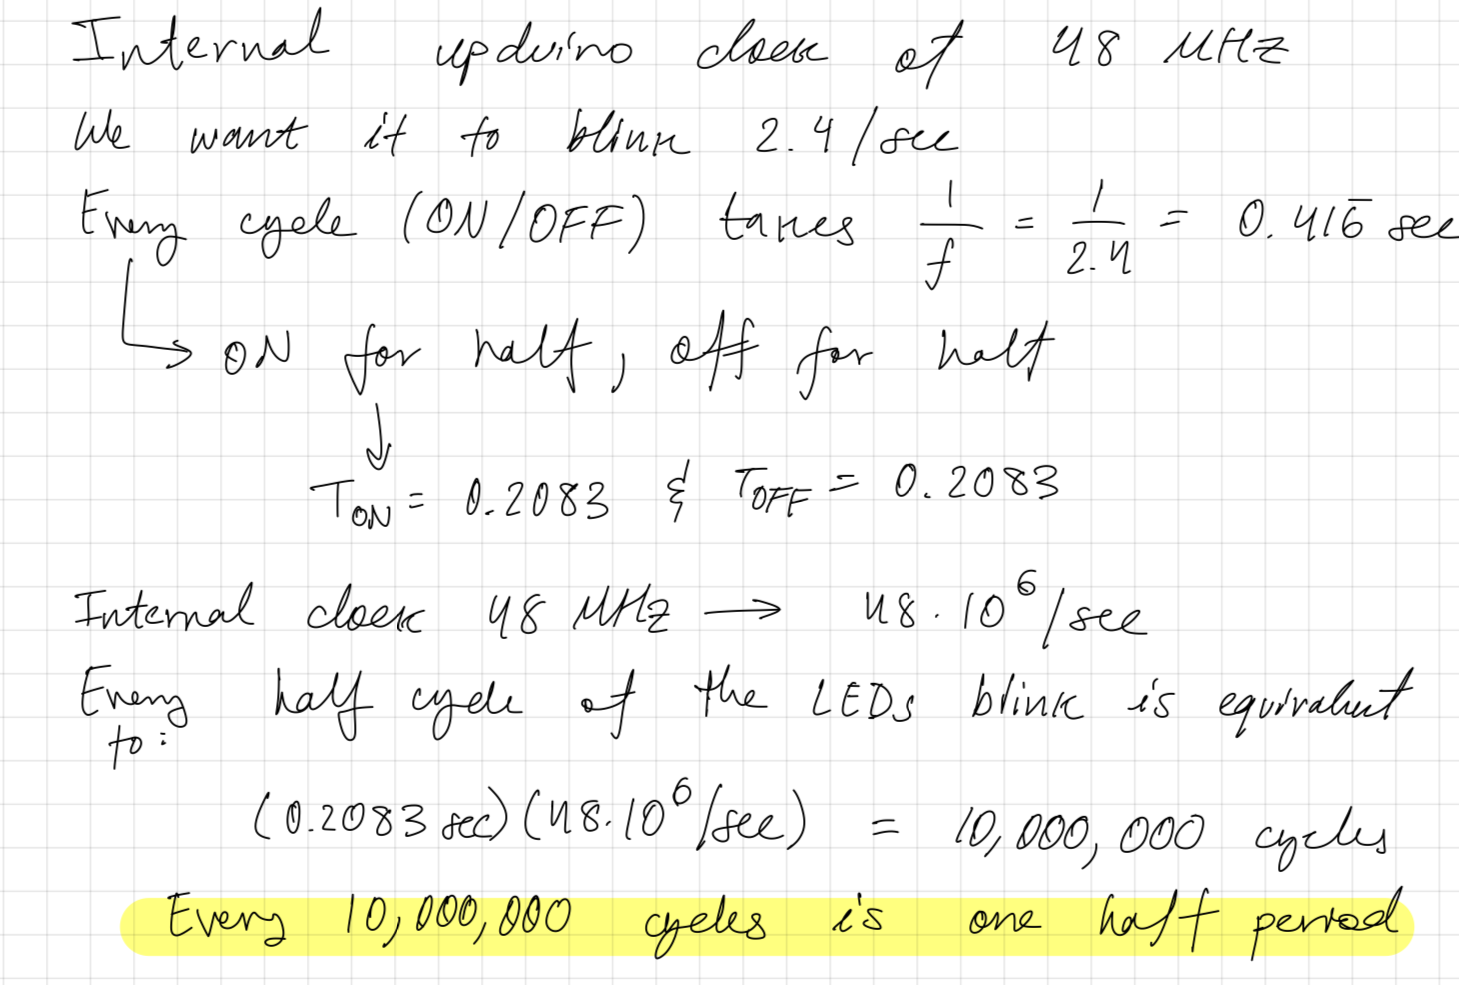 Internal upduino clock at 48 MHz
We want it to blink 2.4/sec
Every cycle (ON/OFF) takes 1/f = 1/2.4 = 0.416̅ sec
↳ ON for half, off for half
↓
T_ON = 0.2083 & T_OFF = 0.2083
Internal clock 48 MHz → 48·10⁶/sec
Every half cycle of the LEDs blink is equivalent
to:
(0.2083 sec)(48·10⁶/sec) = 10,000,000 cycles
Every 10,000,000 cycles is one half period